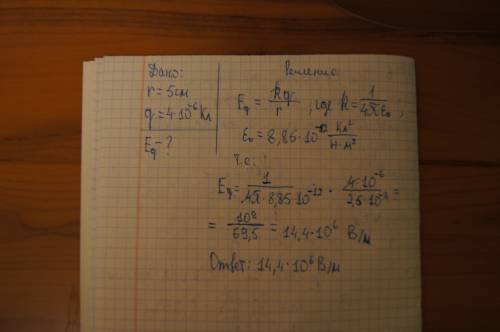 Дано:
r = 5 см
q = 4·10⁻⁶ Кл
E_q - ?
Решение
E_q = kq/r , где k = 1/4πε₀ ,
ε₀ = 8,85·10⁻¹² Кл²/Н·м²
т.е.:
E_q = 1/4π·8,85·10⁻¹² · 4·10⁻⁶/25·10⁻⁴ =
= 10⁹/69,5 = 14,4·10⁶ В/м
Ответ: 14,4·10⁶ В/м